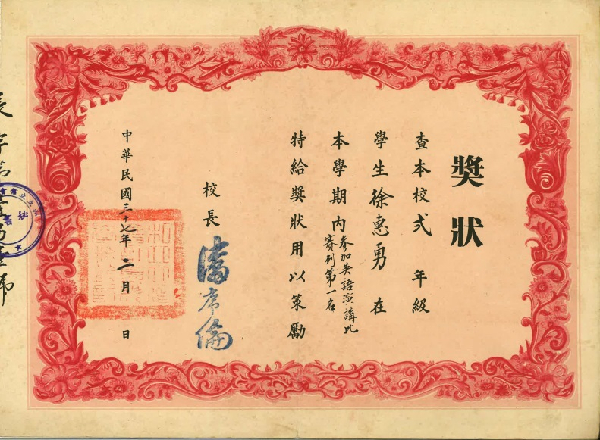 獎狀
查本校弍年級
學生徐惠勇在
本學期內參加英語演講比
賽列第一名
特給獎狀用以策勵
校長
潘序倫
中華民國三十七年二月 日